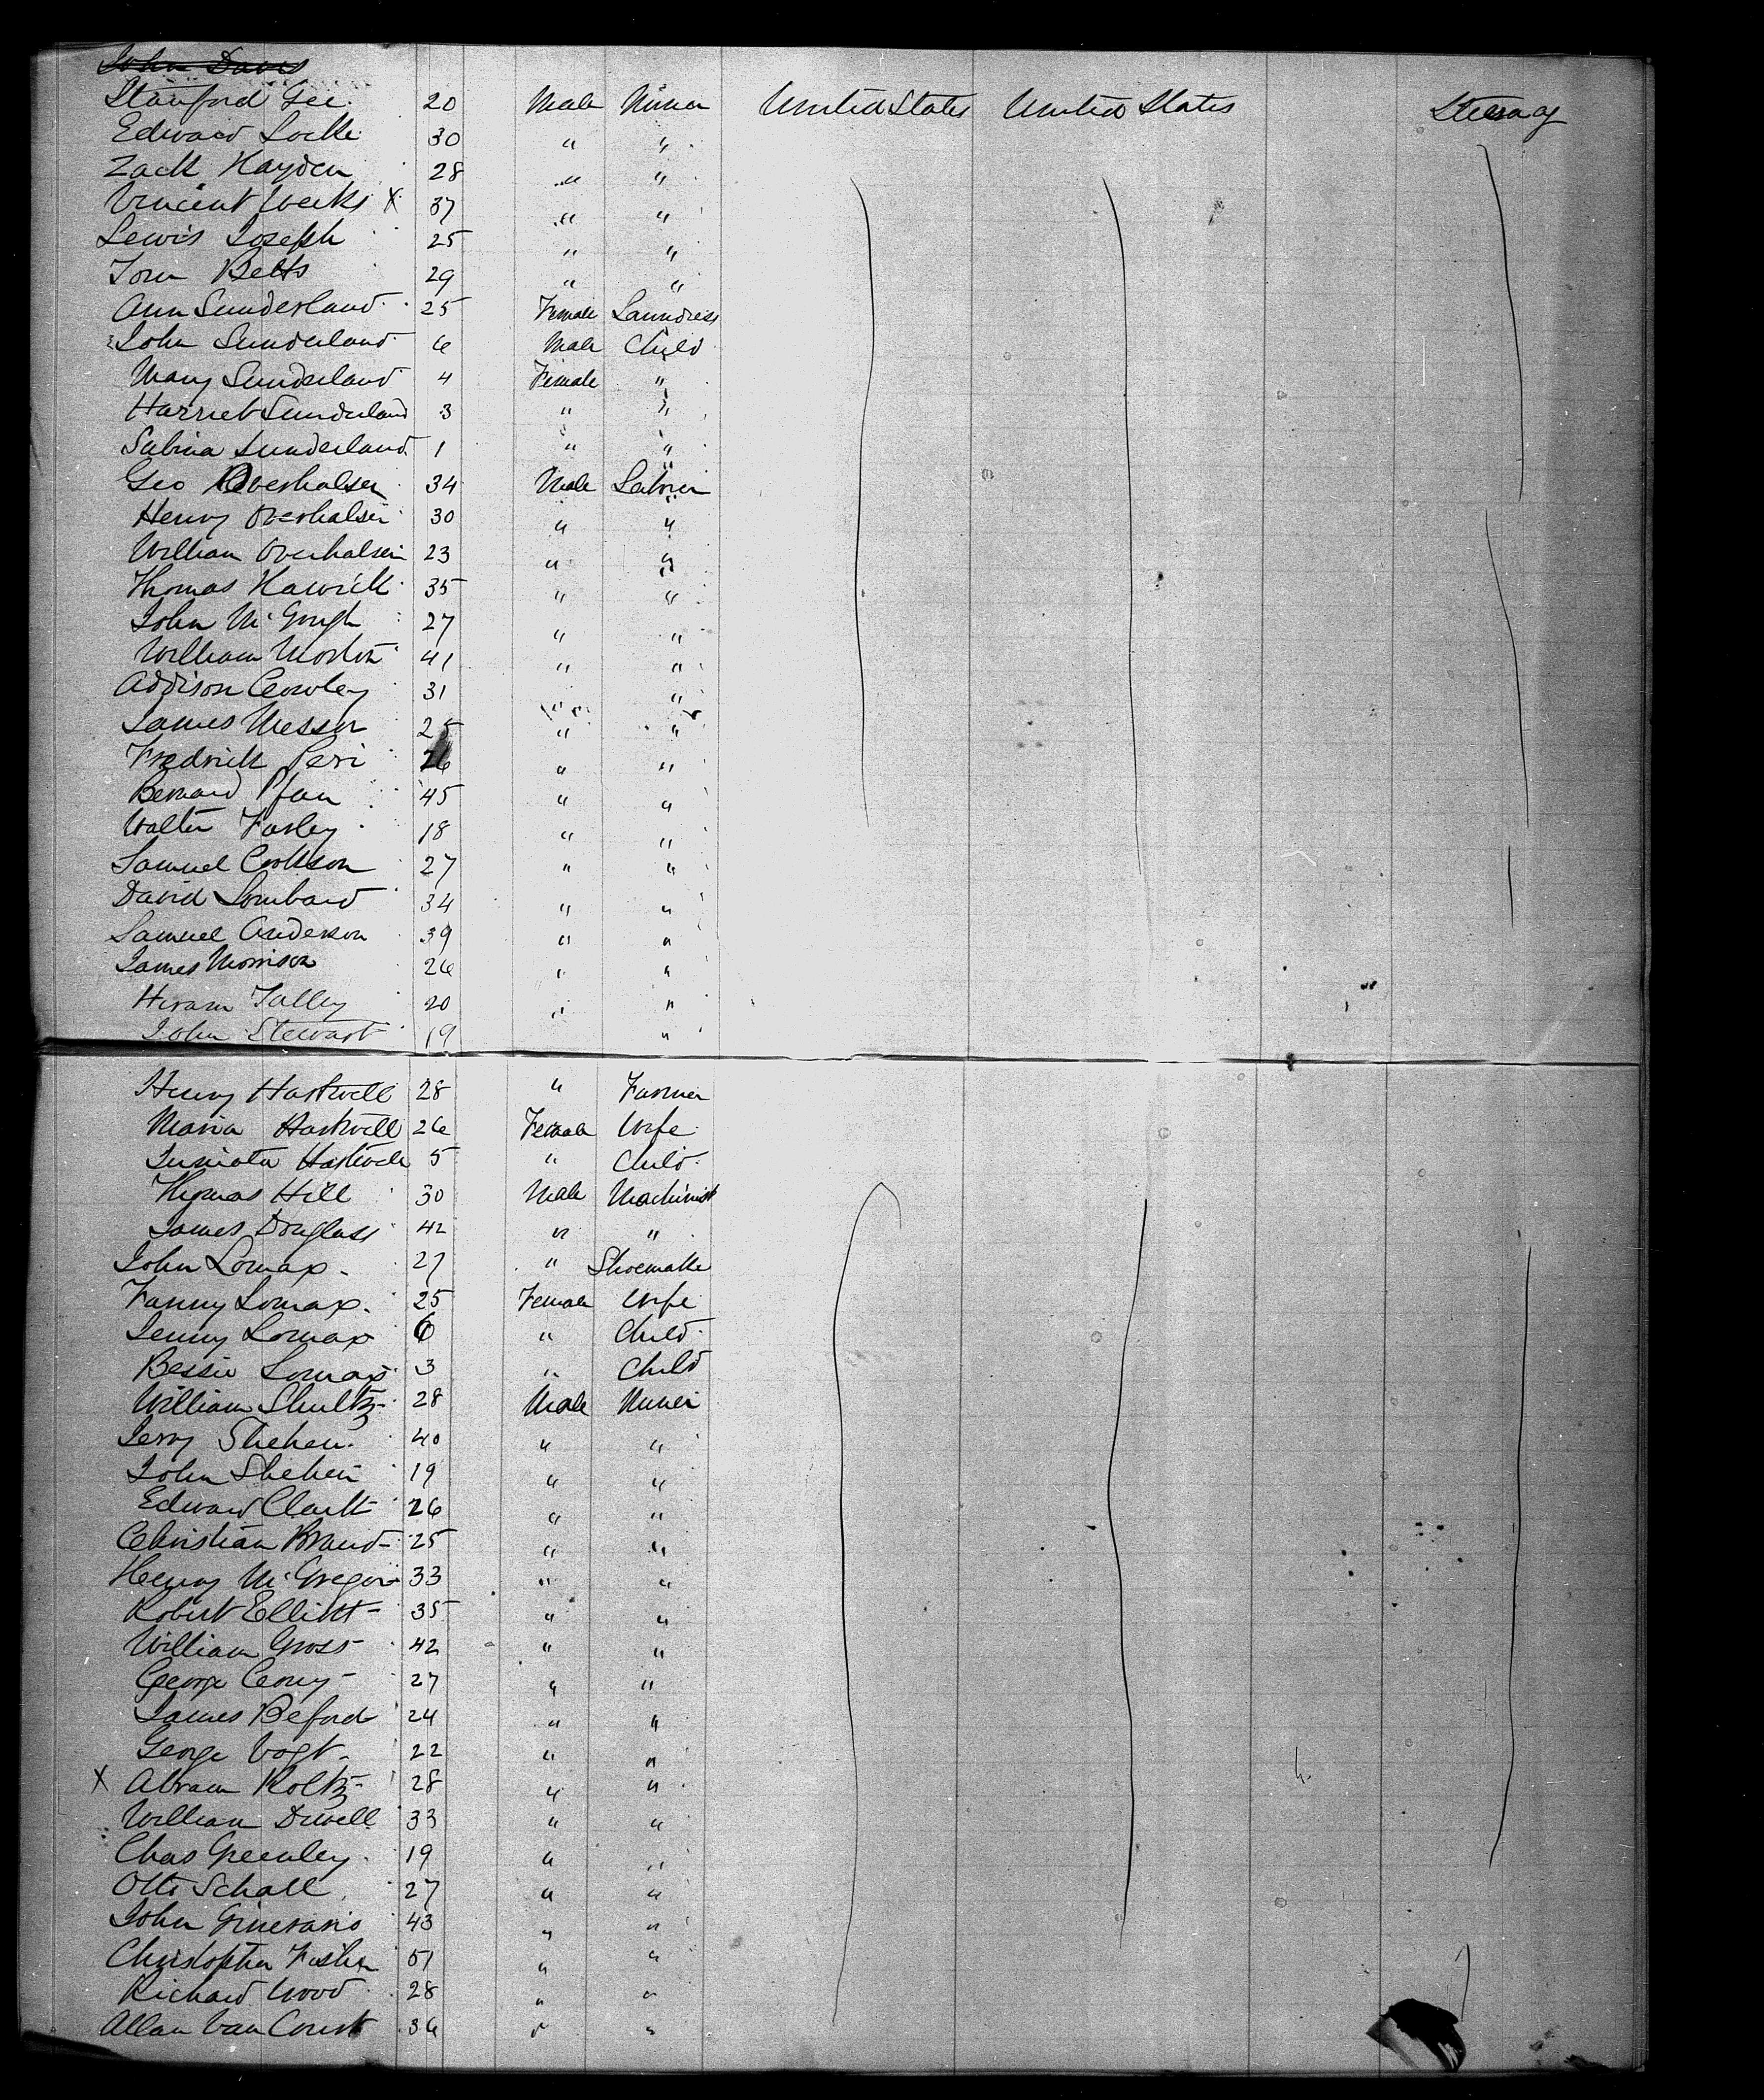 John Davis
Stanford Gee 20 Male Miner United States United States Steerag
Edward Locke 30 " "
Zack Hayden 28 " "
Vincent Weeks X 37 " "
Lewis Joseph 25 " "
Tom Betts 29 " "
Ann Sunderland 25 Female Laundress
John Sunderland 6 Male Child
Mary Sunderland 4 Female "
Harriet Sunderland 3 " "
Sabina Sunderland 1 " "
Geo Overhalser 34 Male Laborer
Henry Overhalser 30 " "
William Overhalser 23 " "
Thomas Hawick 35 " "
John McGough 27 " "
William Morton 41 " "
Addison Cowley 31 " "
James Messer 25 " "
Fredrick Peri 26 " "
Bernard Pfau 45 " "
Walter Farley 18 " "
Samuel Cookson 27 " "
David Lombard 34 " "
Samuel Anderson 39 " "
James Morrison 26 " "
Hiram Talley 20 " "
John Stewart 19 "
Henry Hartwell 28 " Farmer
Maria Hartwell 26 Female Wife
Juniata Hartwell 5 " Child
Thomas Hill 30 Male Machinist
James Douglass 42 " "
John Lomax 27 " Shoemake
Fanny Lomax 25 Female Wife
Jenny Lomax 6 " Child
Bessie Lomax 3 " Child
William Shultz 28 Male Miner
Jerry Shehen 40 " "
John Shehen 19 " "
Edward Clark 26 " "
Christian Brand 25 " "
Henry McGregor 33 " "
Robert Elliott 35 " "
William Gross 42 " "
George Cony 27 " "
James Beford 24 " "
George Vogt 22 " "
X Abram Koltz 28 " "
William Duvell 33 " "
Chas Greenley 19 " "
Otto Schall 27 " "
John Ginerasio 43 " "
Christopher Fisher 51 " "
Richard Wood 28 " "
Allan Van Court 36 " "